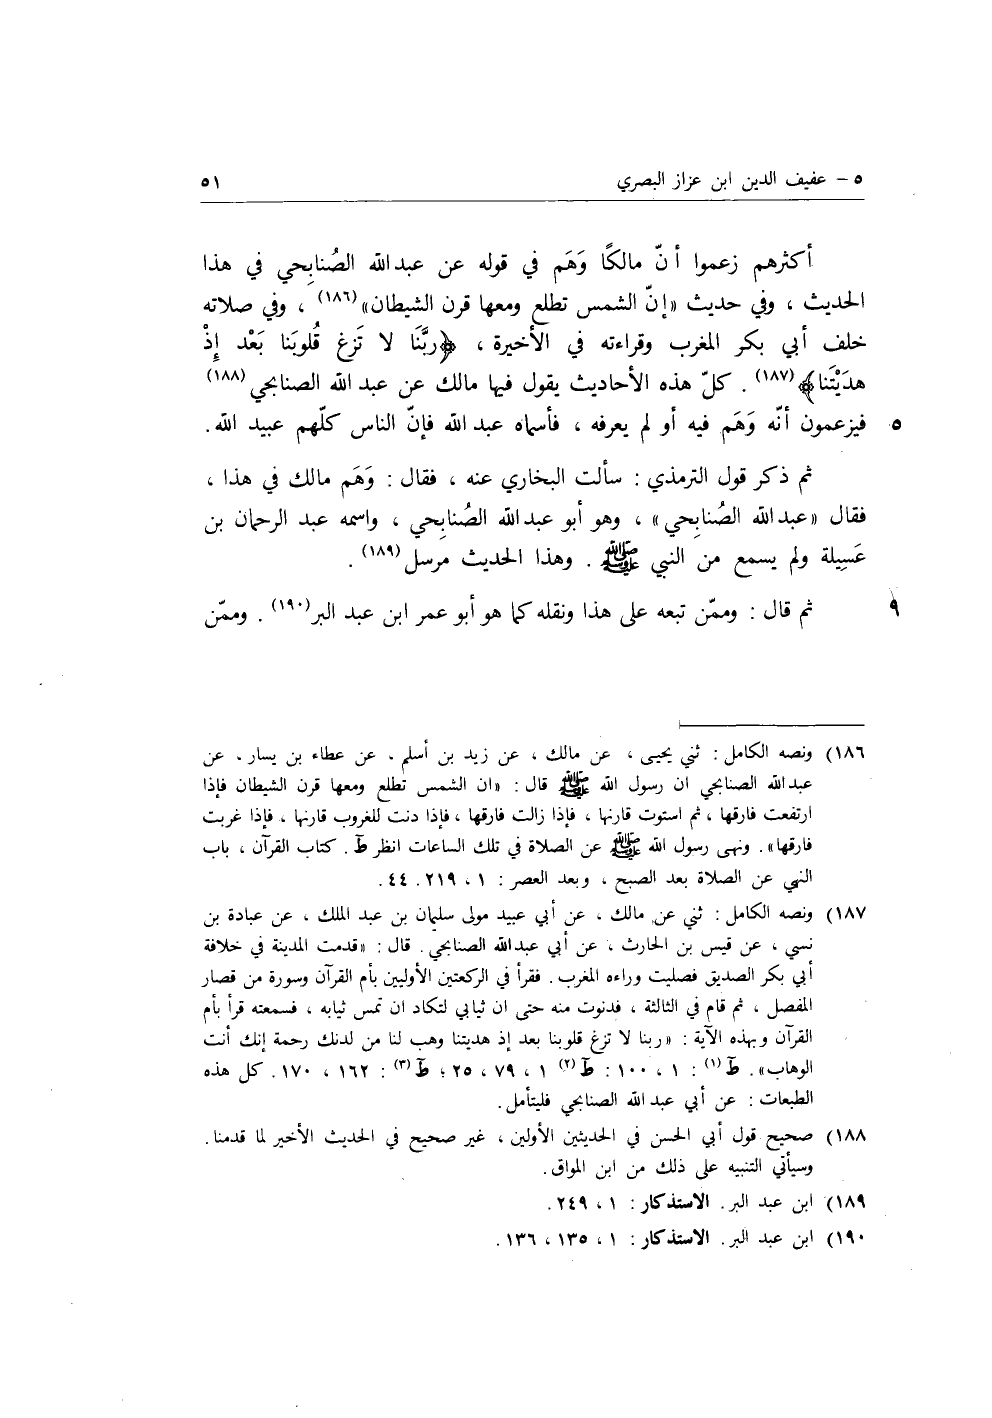 ٥ – عفيف الدين ابن عزاز البصري ٥١
أكثرهم زعموا أنّ مالكًا وَهَم في قوله عن عبدالله الصُنابِحي في هذا
الحديث ، وفي حديث «إنّ الشمس تطلع ومعها قرن الشيطان»(١٨٦) ، وفي صلاته
خلف أبي بكر المغرب وقراءته في الأخيرة ، ﴿ربَّنَا لا تَزغ قُلوبَنا بَعْد إِذْ
هدَيْتَنا﴾(١٨٧) . كلّ هذه الأحاديث يقول فيها مالك عن عبد الله الصنابحي(١٨٨)
٥ فيزعمون أنّه وَهَم فيه أو لم يعرفه ، فأسماه عبد الله فإنّ الناس كلّهم عبيد الله .
ثم ذكر قول الترمذي : سألت البخاري عنه ، فقال : وَهَم مالك في هذا ،
فقال «عبدالله الصُنابِحي» ، وهو أبو عبدالله الصُنابِحي ، واسمه عبد الرحمان بن
عَسِيلة ولم يسمع من النبي ﷺ . وهذا الحديث مرسل(١٨٩) .
٩ ثم قال : وممّن تبعه على هذا ونقله كما هو أبو عمر ابن عبد البر(١٩٠) . وممّن
١٨٦) ونصه الكامل : ثني يحيى ، عن مالك ، عن زيد بن أسلم . عن عطاء بن يسار . عن
عبدالله الصنابحي ان رسول الله ﷺ قال : «ان الشمس تطلع ومعها قرن الشيطان فإذا
ارتفعت فارقها ، ثم استوت قارنها ، فإذا زالت فارقها ، فإذا دنت للغروب قارنها ، فإذا غربت
فارقها» . ونهى رسول الله ﷺ عن الصلاة في تلك الساعات انظر طَ . كتاب القرآن ، باب
النهي عن الصلاة بعد الصبح ، وبعد العصر : ١ ، ٢١٩ . ٤٤ .
١٨٧) ونصه الكامل : ثني عن مالك ، عن أبي عبيد مولى سليمان بن عبد الملك ، عن عبادة بن
نسي ، عن قيس بن الحارث ، عن أبي عبدالله الصنابحي . قال : «قدمت المدينة في خلافة
أبي بكر الصديق فصليت وراءه المغرب . فقرأ في الركعتين الأوليين بأم القرآن وسورة من قصار
المفصل ، ثم قام في الثالثة ، فدنوت منه حتى ان ثيابي لتكاد ان تمس ثيابه ، فسمعته قرأ بأم
القرآن وبهذه الآية : «ربنا لا تزغ قلوبنا بعد إذ هديتنا وهب لنا من لدنك رحمة إنك أنت
الوهاب» . طَ(١) : ١ ، ١٠٠ : طَ(٢) ١ ، ٧٩ ، ٢٥ ؛ طَ(٣) : ١٦٢ ، ١٧٠ . كل هذه
الطبعات : عن أبي عبد الله الصنابحي فليتأمل .
١٨٨) صحيح قول أبي الحسن في الحديثين الأولين ، غير صحيح في الحديث الأخير لما قدمنا .
وسيأتي التنبيه على ذلك من ابن المواق .
١٨٩) ابن عبد البر . الاستذكار : ١ ، ٢٤٩ .
١٩٠) ابن عبد البر . الاستذكار : ١ ، ١٣٥ ، ١٣٦ .